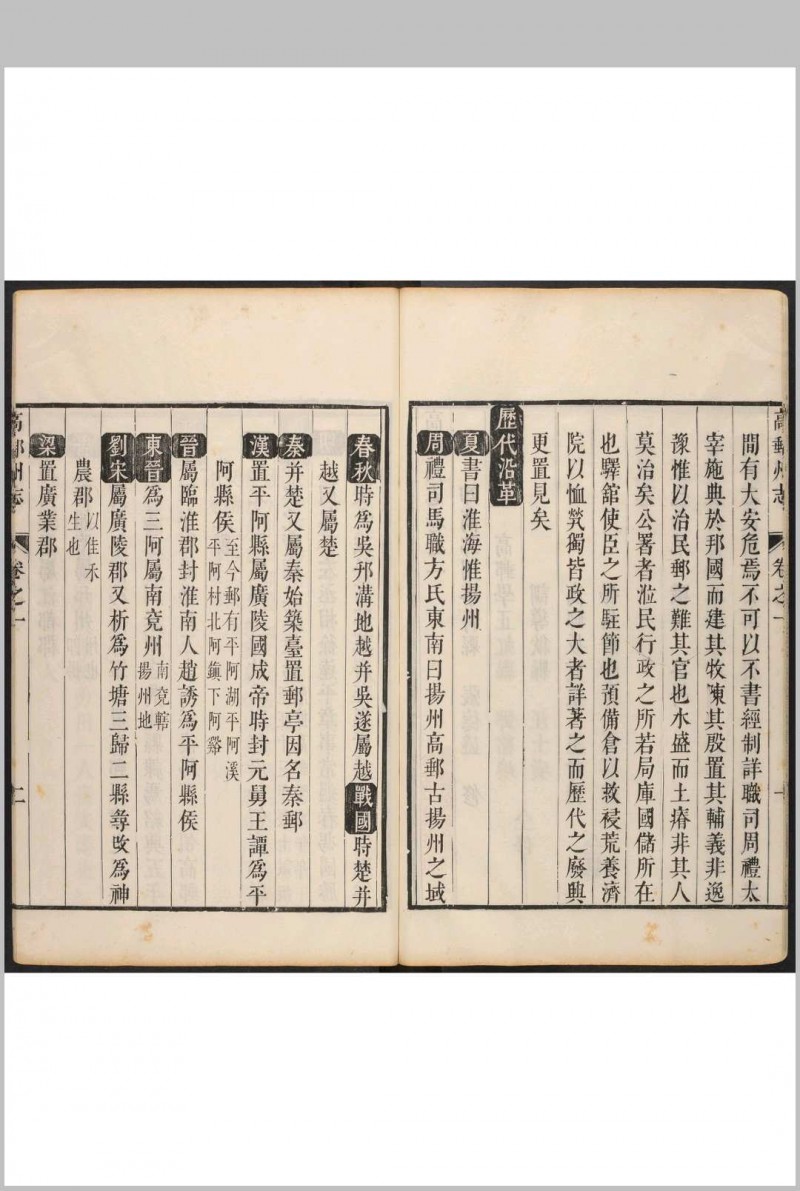 高郵州志 卷之一 一
間有大安危焉不可以不書經制詳職司周禮太
宰施典於邦國而建其牧陳其殷置其輔義非逸
豫惟以治民郵之難其官也水盛而土瘠非其人
莫治矣公署者涖民行政之所若局庫國儲所在
也驛館使臣之所駐節也預備倉以救祲荒養濟
院以恤煢獨皆政之大者詳著之而歷代之廢興
更置見矣
歷代沿革
夏書曰淮海惟揚州
周禮司馬職方氏東南曰揚州高郵古揚州之域
春秋時爲吳邗溝地越并吳遂屬越戰國時楚并
越又屬楚
秦并楚又屬秦始築臺置郵亭因名秦郵
漢置平阿縣屬廣陵國成帝時封元舅王譚爲平
阿縣侯至今郵有平阿湖平阿溪
平阿村北阿鎭下阿谿
晉屬臨淮郡封淮南人趙誘爲平阿縣侯
東晉爲三阿屬南兗州南兗轄
揚州地
劉宋屬廣陵郡又析爲竹塘三歸二縣尋攺爲神
農郡以隹禾
生也
梁置廣業郡
高郵州志 卷之一 二